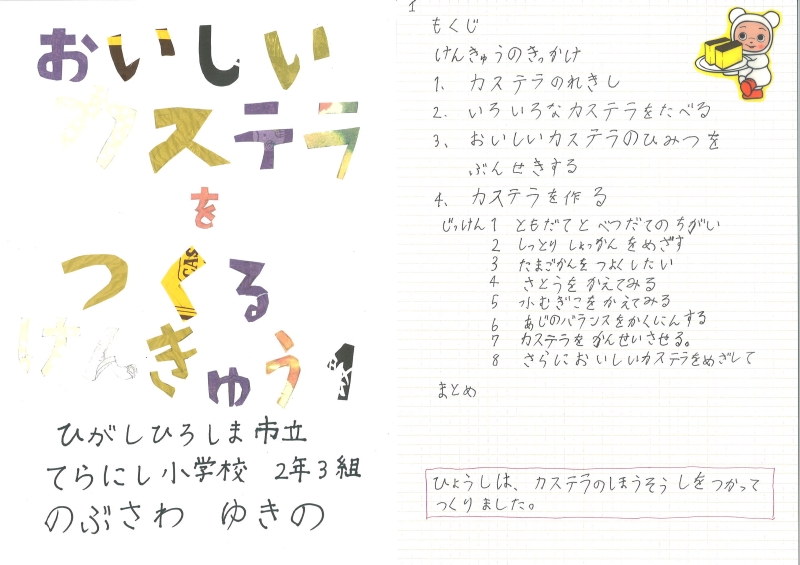 おいしい
カステラ
を
つくる
けんきゅう1
ひがしひろしま市立
てらにし小学校 2年3組
のぶさわ ゆきの
1
もくじ
けんきゅうのきっかけ
1、カステラのれきし
2、いろいろなカステラをたべる
3、おいしいカステラのひみつを
ぶんせきする
4、カステラを作る
じっけん1 ともだてとべつだてのちがい
2 しっとりしょっかんをめざす
3 たまごかんをつよくしたい
4 さとうをかえてみる
5 小むぎこをかえてみる
6 あじのバランスをかくにんする
7 カステラをかんせいさせる。
8 さらにおいしいカステラをめざして
まとめ
ひょうしは、カステラのほうそうしをつかって
つくりました。